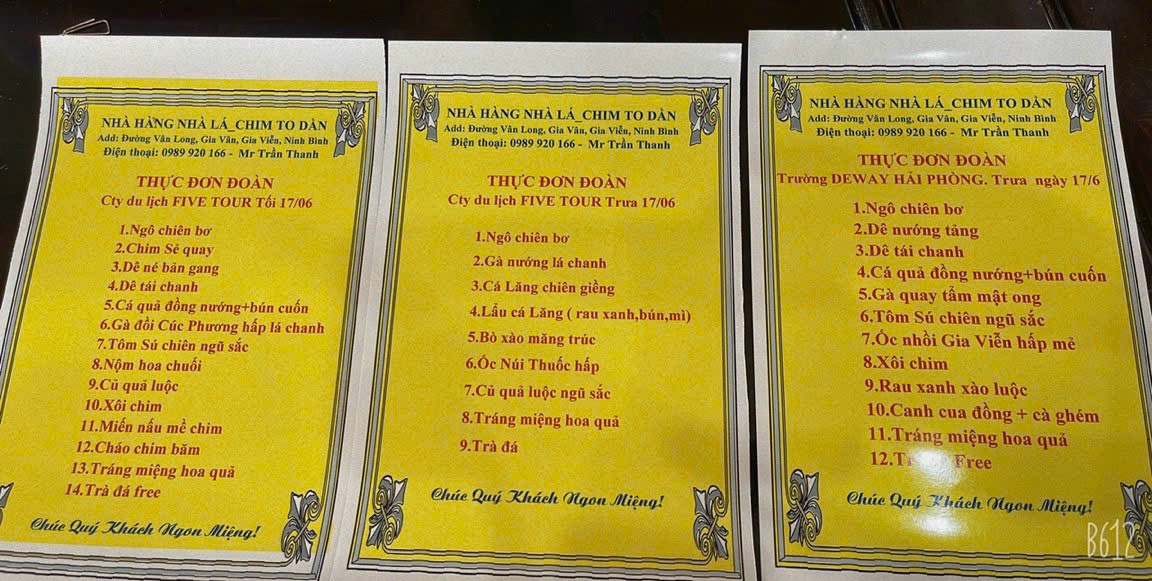 NHÀ HÀNG NHÀ LÁ_CHIM TO DẦN
Add: Đường Vân Long, Gia Vân, Gia Viễn, Ninh Bình
Điện thoại: 0989 920 166 - Mr Trần Thanh
THỰC ĐƠN ĐOÀN
Cty du lịch FIVE TOUR Tối 17/06
1.Ngô chiên bơ
2.Chim Sẻ quay
3.Dê né bản gang
4.Dê tái chanh
5.Cá quả đồng nướng+bún cuốn
6.Gà đồi Cúc Phương hấp lá chanh
7.Tôm Sú chiên ngũ sắc
8.Nộm hoa chuối
9.Củ quả luộc
10.Xôi chim
11.Miến nấu mề chim
12.Cháo chim băm
13.Tráng miệng hoa quả
14.Trà đá free
Chúc Quý Khách Ngon Miệng!
NHÀ HÀNG NHÀ LÁ_CHIM TO DẦN
Add: Đường Vân Long, Gia Vân, Gia Viễn, Ninh Bình
Điện thoại: 0989 920 166 - Mr Trần Thanh
THỰC ĐƠN ĐOÀN
Cty du lịch FIVE TOUR Trưa 17/06
1.Ngô chiên bơ
2.Gà nướng lá chanh
3.Cá Lăng chiên giềng
4.Lẩu cá Lăng ( rau xanh,bún,mì)
5.Bò xào măng trúc
6.Ốc Núi Thuốc hấp
7.Củ quả luộc ngũ sắc
8.Tráng miệng hoa quả
9.Trà đá
Chúc Quý Khách Ngon Miệng!
NHÀ HÀNG NHÀ LÁ_CHIM TO DẦN
Add: Đường Vân Long, Gia Vân, Gia Viễn, Ninh Bình
Điện thoại: 0989 920 166 - Mr Trần Thanh
THỰC ĐƠN ĐOÀN
Trường DEWAY HẢI PHÒNG. Trưa ngày 17/6
1.Ngô chiên bơ
2.Dê nướng tảng
3.Dê tái chanh
4.Cá quả đồng nướng+bún cuốn
5.Gà quay tẩm mật ong
6.Tôm Sú chiên ngũ sắc
7.Ốc nhồi Gia Viễn hấp mẻ
8.Xôi chim
9.Rau xanh xào luộc
10.Canh cua đồng + cà ghém
11.Tráng miệng hoa quả
12. Free
Chúc Quý Khách Ngon Miệng!
B612